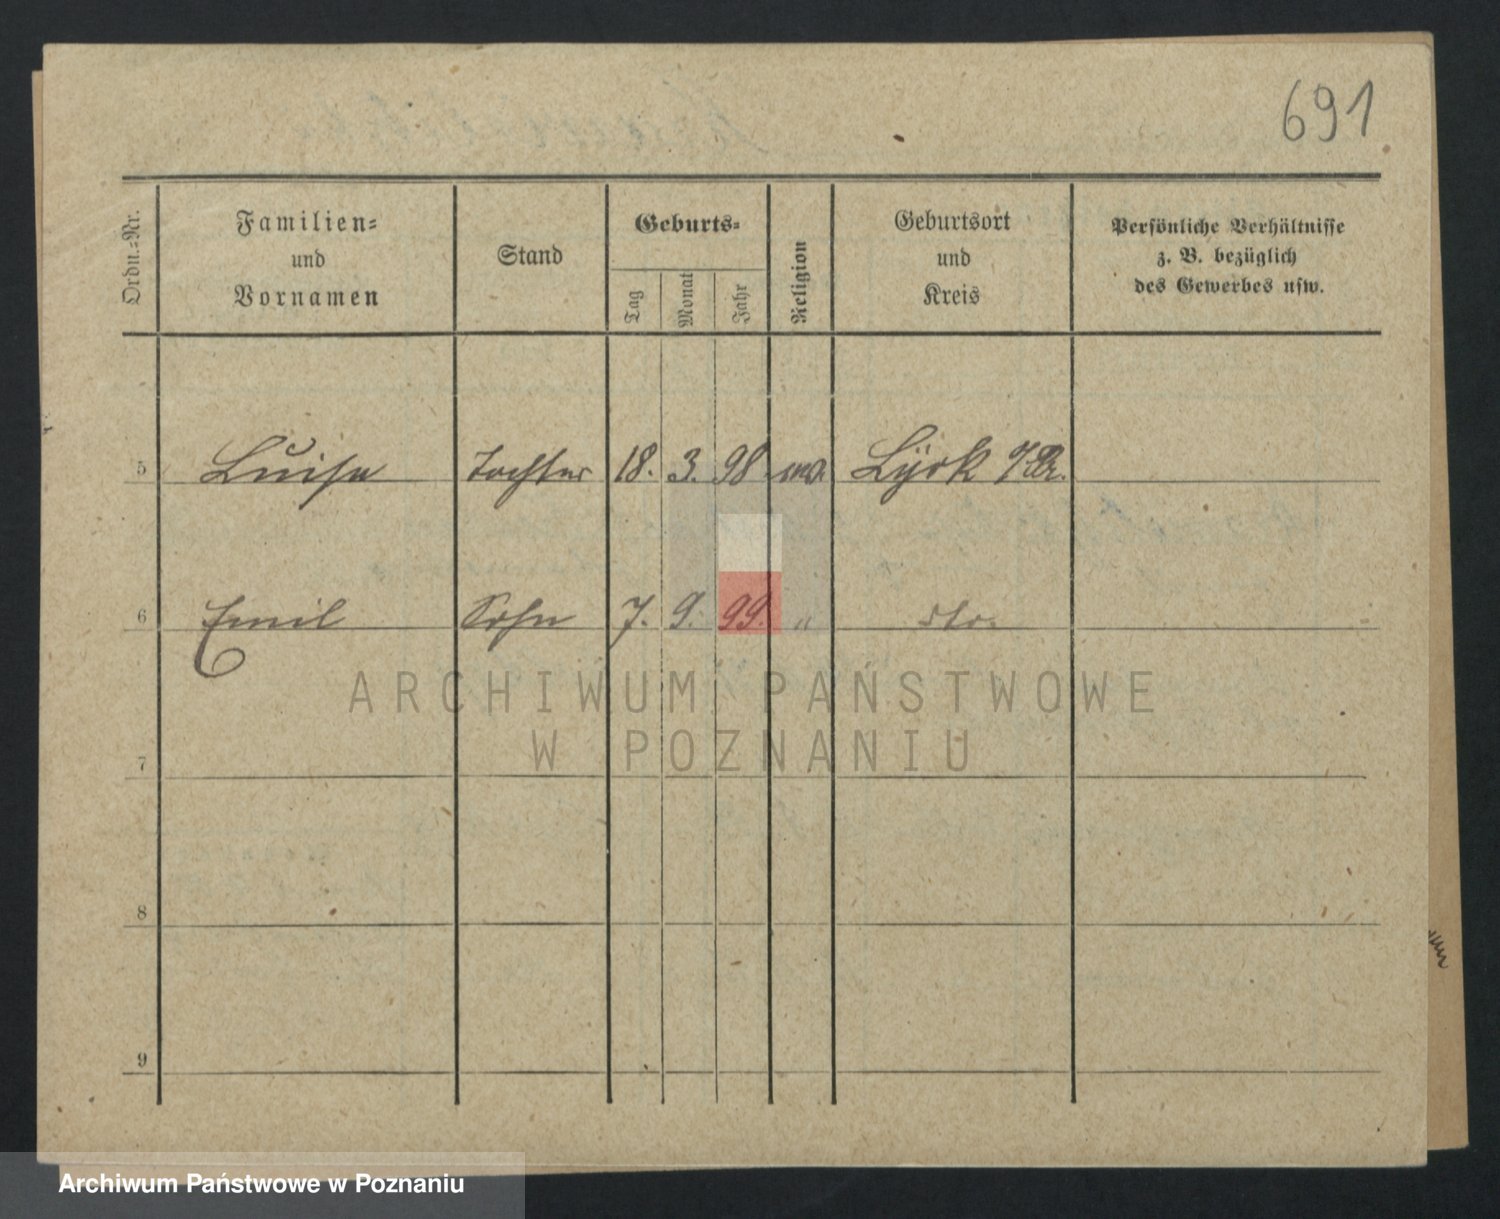 691
Ordn.-Nr.
Familien-
und
Vornamen
Stand
Geburts-
Tag
Monat
Jahr
Religion
Geburtsort
und
Kreis
Persönliche Verhältnisse
z. B. bezüglich
des Gewerbes usw.
5 Luise Tochter 18. 3. 98 Lyck
6 Emil Sohn 7. 9. 99. " dto.
7
8
9
ARCHIWUM PAŃSTWOWE
W POZNANIU
Archiwum Państwowe w Poznaniu